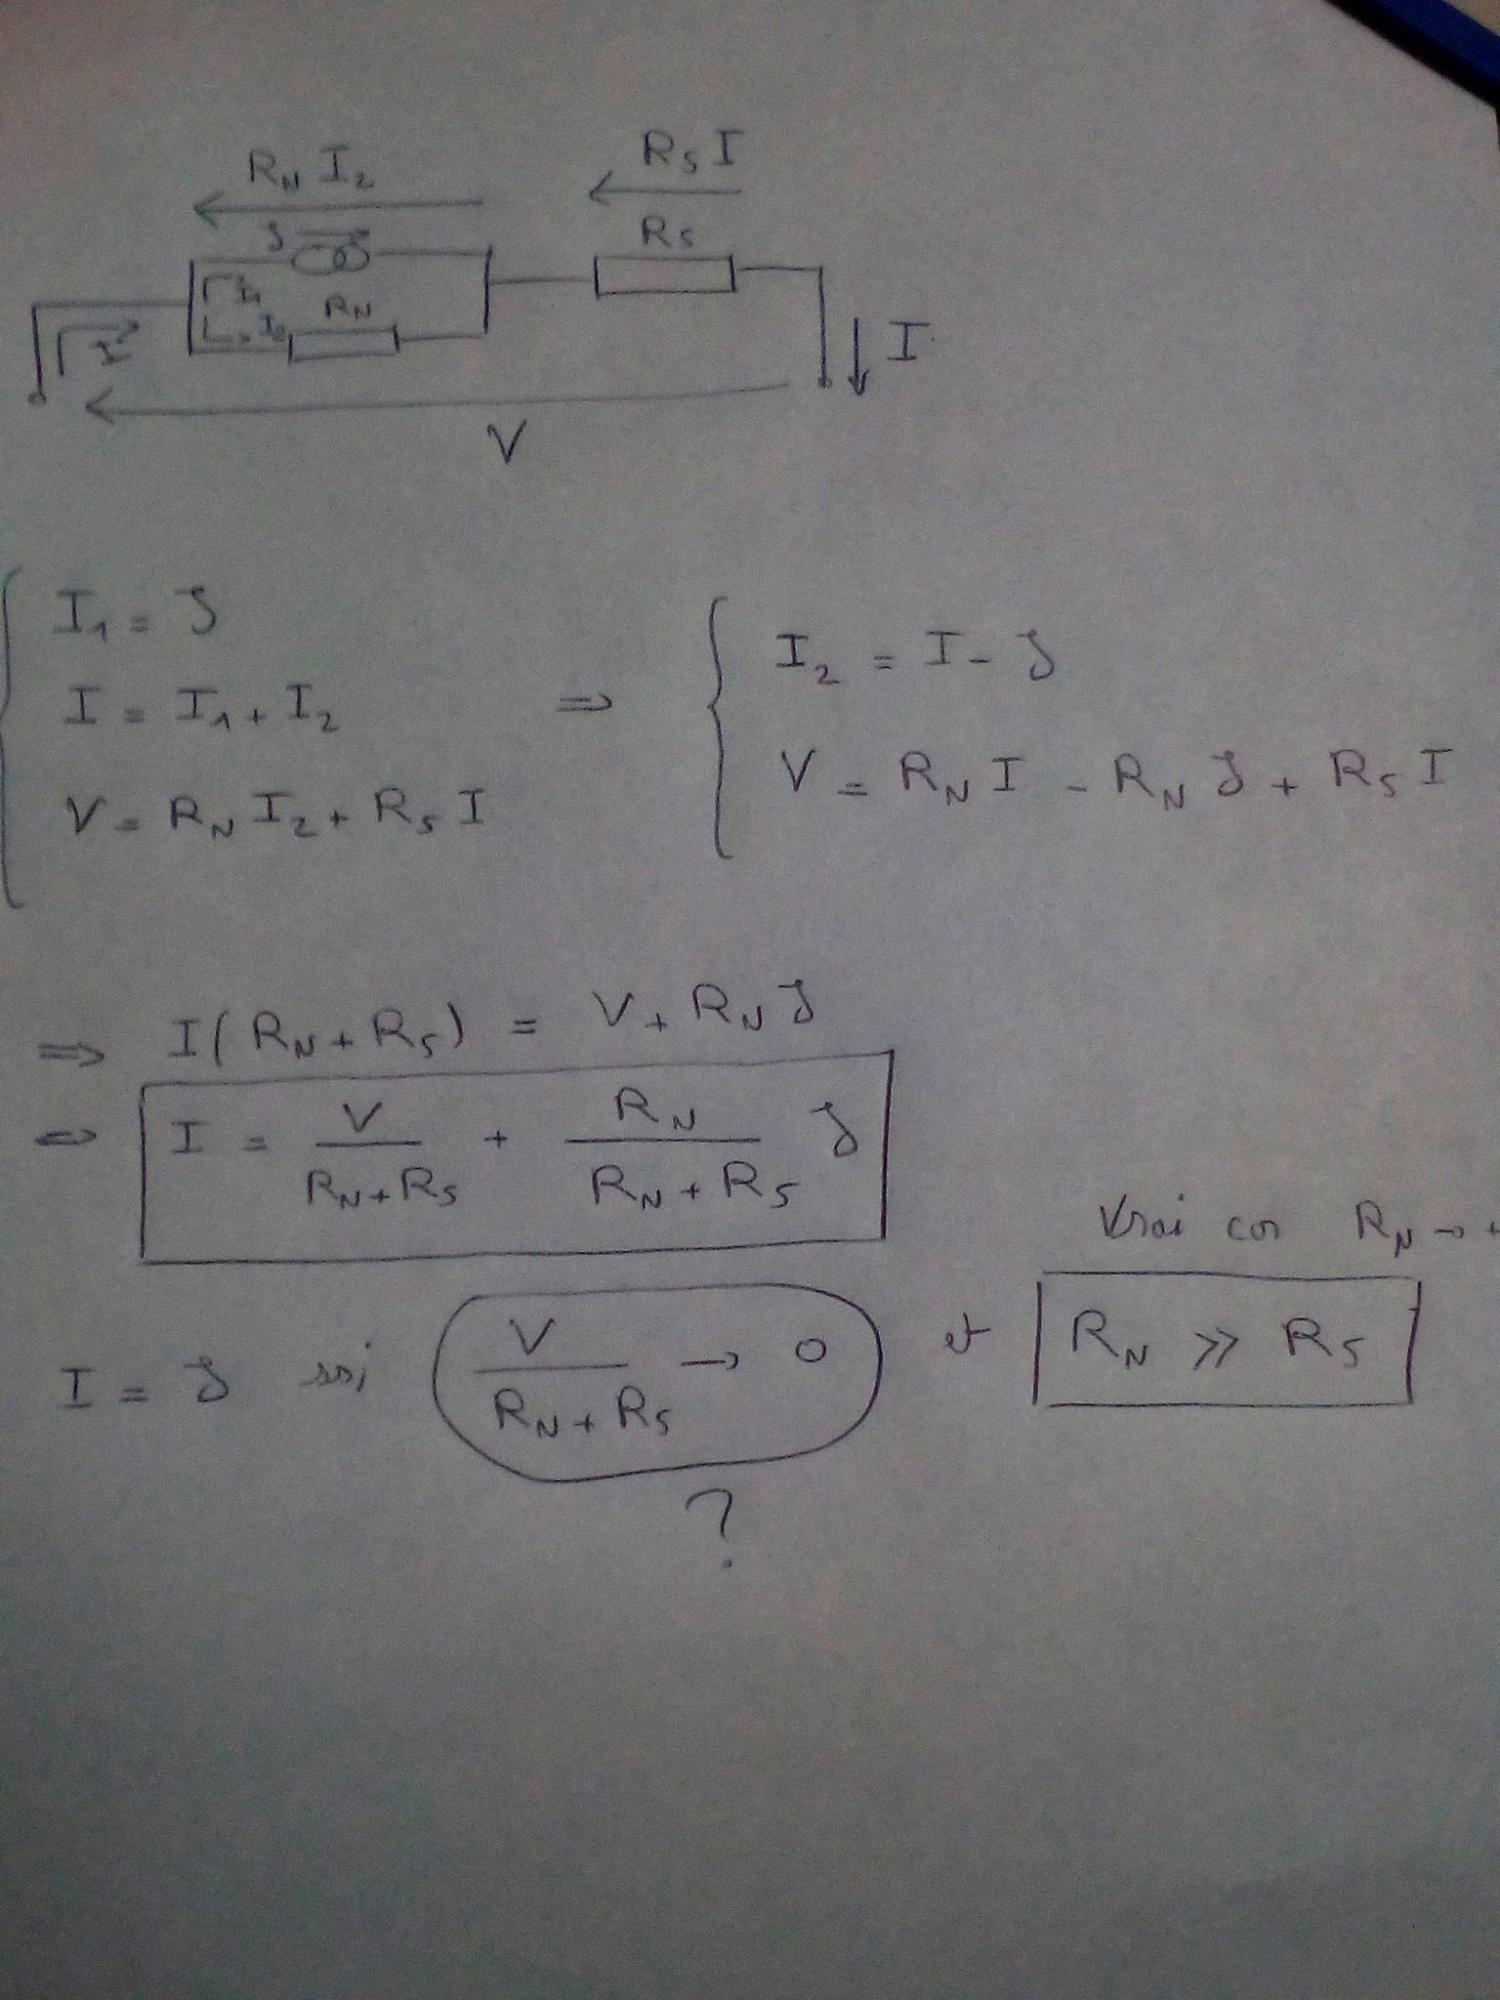 R_N I_2
R_S I
J
R_S
I_1
R_N
I_2
I
I
V
I_1 = J
I = I_1 + I_2
V = R_N I_2 + R_S I
⇒
I_2 = I - J
V = R_N I - R_N J + R_S I
⇒ I(R_N + R_S) = V + R_N J
⇔ I = V/(R_N + R_S) + R_N/(R_N + R_S) J
Vrai car R_N → +
I = J ssi V/(R_N + R_S) → 0 et R_N >> R_S
?